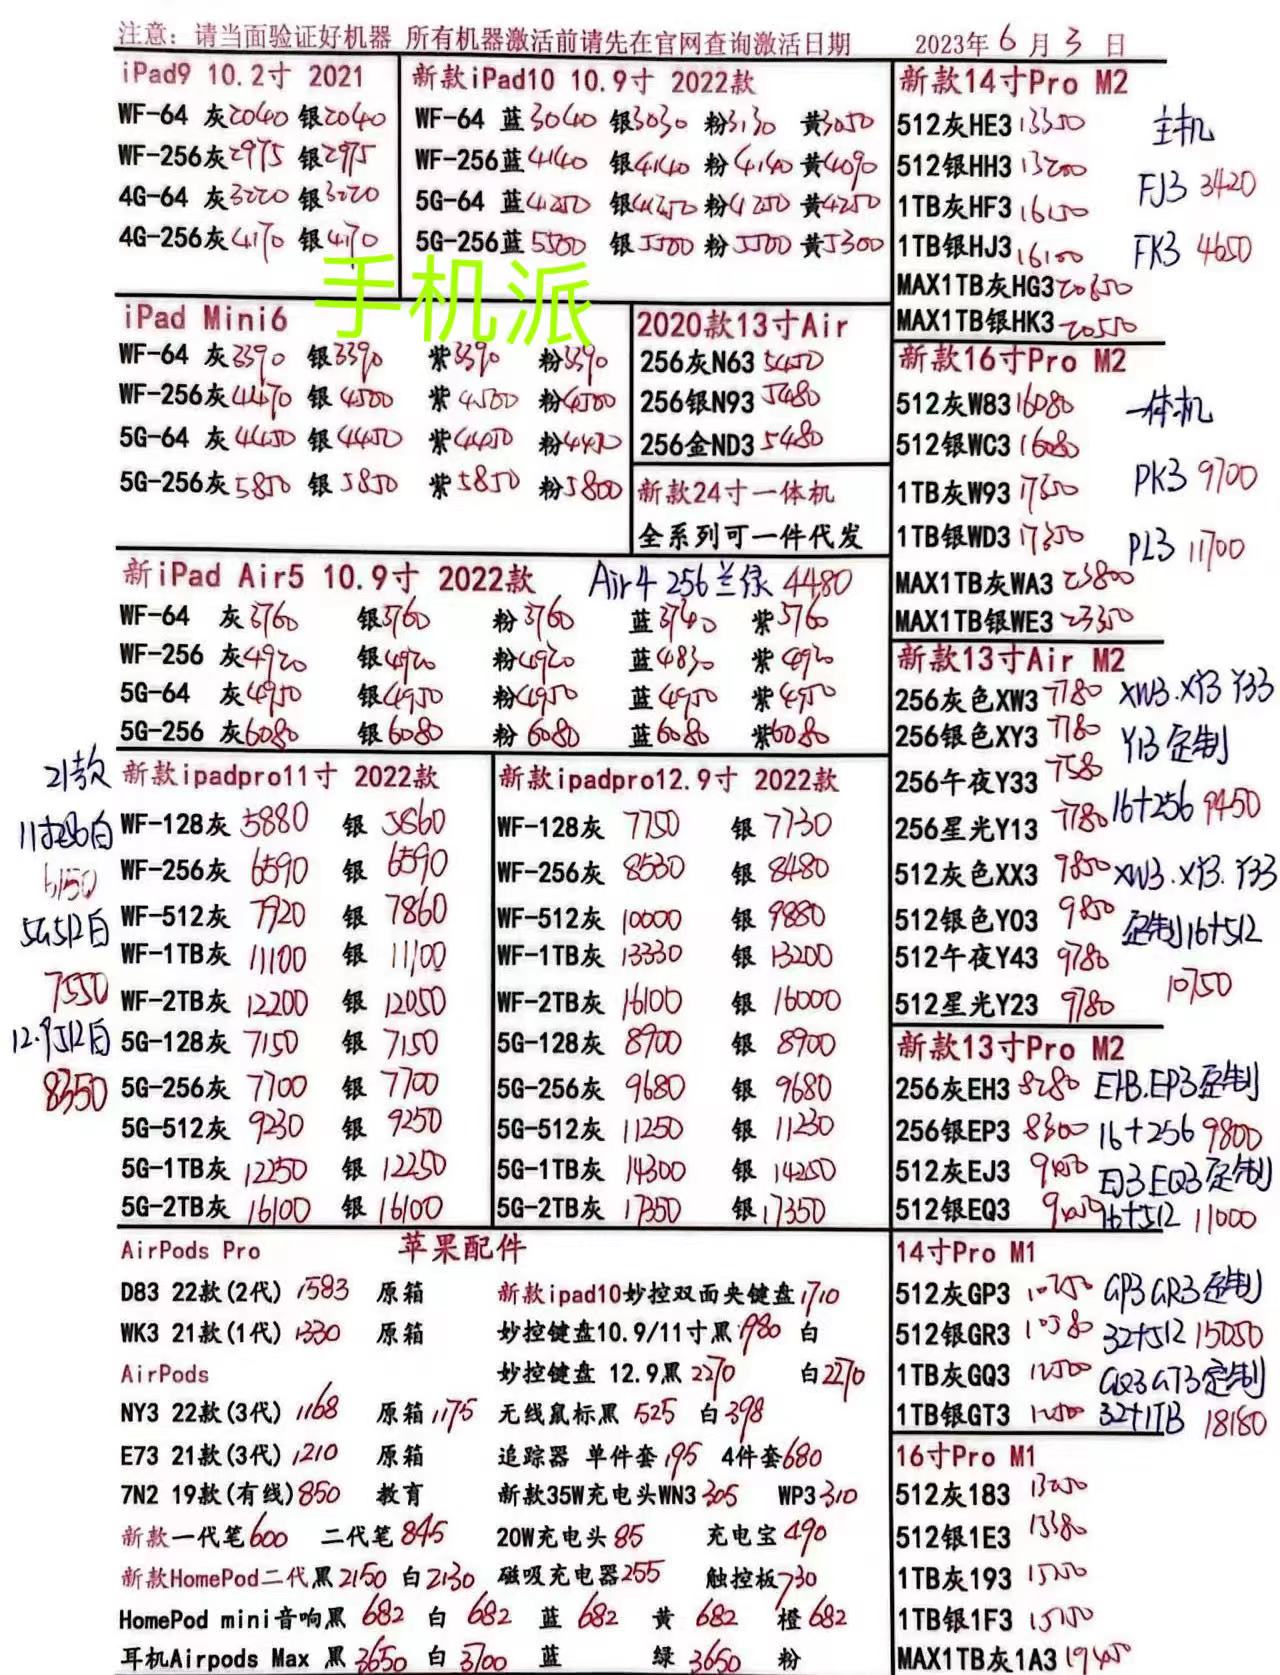 注意：请当面验证好机器 所有机器激活前请先在官网查询激活日期 2023年6月3日
iPad9 10.2寸 2021
WF-64 灰2040 银2040
WF-256灰2975 银2975
4G-64 灰3220 银3220
4G-256灰4170 银4170
新款iPad10 10.9寸 2022款
WF-64 蓝3040 银3030 粉3130 黄3050
WF-256蓝4140 银4140 粉4140 黄4090
5G-64 蓝4250 银4250 粉4250 黄4250
5G-256蓝5500 银5500 粉5500 黄5300
手机派
iPad Mini6
WF-64 灰3390 银3390 紫3390 粉3390
WF-256灰4470 银4500 紫4500 粉4500
5G-64 灰4450 银4450 紫4450 粉4450
5G-256灰5850 银5850 紫5850 粉5800
2020款13寸Air
256灰N63 5450
256银N93 5480
256金ND3 5480
新款24寸一体机
全系列可一件代发
新iPad Air5 10.9寸 2022款 Air4 256兰绿 4480
WF-64 灰3760 银3760 粉3760 蓝3740 紫3760
WF-256 灰4920 银4920 粉4920 蓝4830 紫4920
5G-64 灰4950 银4950 粉4950 蓝4950 紫4950
5G-256 灰6080 银6080 粉6080 蓝6080 紫6080
21款
7550
12.9 512白
8350
新款ipadpro11寸 2022款
WF-128灰 5880 银 5860
WF-256灰 6590 银 6590
WF-512灰 7920 银 7860
WF-1TB灰 11100 银 11100
WF-2TB灰 12200 银 12050
5G-128灰 7150 银 7150
5G-256灰 7700 银 7700
5G-512灰 9230 银 9250
5G-1TB灰 12250 银 12250
5G-2TB灰 16100 银 16100
新款ipadpro12.9寸 2022款
WF-128灰 7750 银 7730
WF-256灰 8530 银 8480
WF-512灰 10000 银 9880
WF-1TB灰 13330 银 13200
WF-2TB灰 16100 银 16000
5G-128灰 8900 银 8900
5G-256灰 9680 银 9680
5G-512灰 11250 银 11230
5G-1TB灰 14300 银 14250
5G-2TB灰 17350 银 17350
苹果配件
AirPods Pro
D83 22款(2代) 1583 原箱
WK3 21款(1代) 1330 原箱
AirPods
NY3 22款(3代) 1168 原箱 1175
E73 21款(3代) 1210 原箱
7N2 19款(有线) 850 教育
新款一代笔600 二代笔845
新款HomePod二代黑2150 白2130
HomePod mini音响黑 682 白 682 蓝 682 黄 682 橙682
耳机Airpods Max 黑3650 白3700 蓝 绿 3650 粉
新款ipad10妙控双面夹键盘1710
妙控键盘10.9/11寸黑1980 白
妙控键盘 12.9黑2270 白2270
无线鼠标黑 525 白398
追踪器 单件套195 4件套680
新款35W充电头WN3 305 WP3 310
20W充电头85 充电宝490
磁吸充电器255 触控板730
新款14寸Pro M2
512灰HE3 13350
512银HH3 13200
1TB灰HF3 16150
1TB银HJ3 16100
MAX1TB灰HG3 20650
MAX1TB银HK3 20550
主机
FJ3 3420
FK3 4650
新款16寸Pro M2
512灰W83 16080
512银WC3 16080
1TB灰W93 17650
1TB银WD3 17350
MAX1TB灰WA3 23800
MAX1TB银WE3 23350
一体机
PK3 9700
PL3 11700
新款13寸Air M2
256灰色XW3 7780
256银色XY3 7780
256午夜Y33 7580
256星光Y13 7780
512灰色XX3 9850
512银色Y03 9850
512午夜Y43 9780
512星光Y23 9780
XW3.XY3 Y33
Y13 定制
16+256 9450
XW3.XY3.Y33
定制16+512
10750
新款13寸Pro M2
256灰EH3 8280
256银EP3 8300
512灰EJ3
512银EQ3
EH3.EP3定制
16+256 9800
EJ3 EQ3定制
16+512 11000
14寸Pro M1
512灰GP3
512银GR3 10380
1TB灰GQ3 12500
1TB银GT3
GP3 GR3定制
32+512 15050
GQ3 GT3定制
32+1TB 18180
16寸Pro M1
512灰183
512银1E3 13380
1TB灰193
1TB银1F3
MAX1TB灰1A3 19450